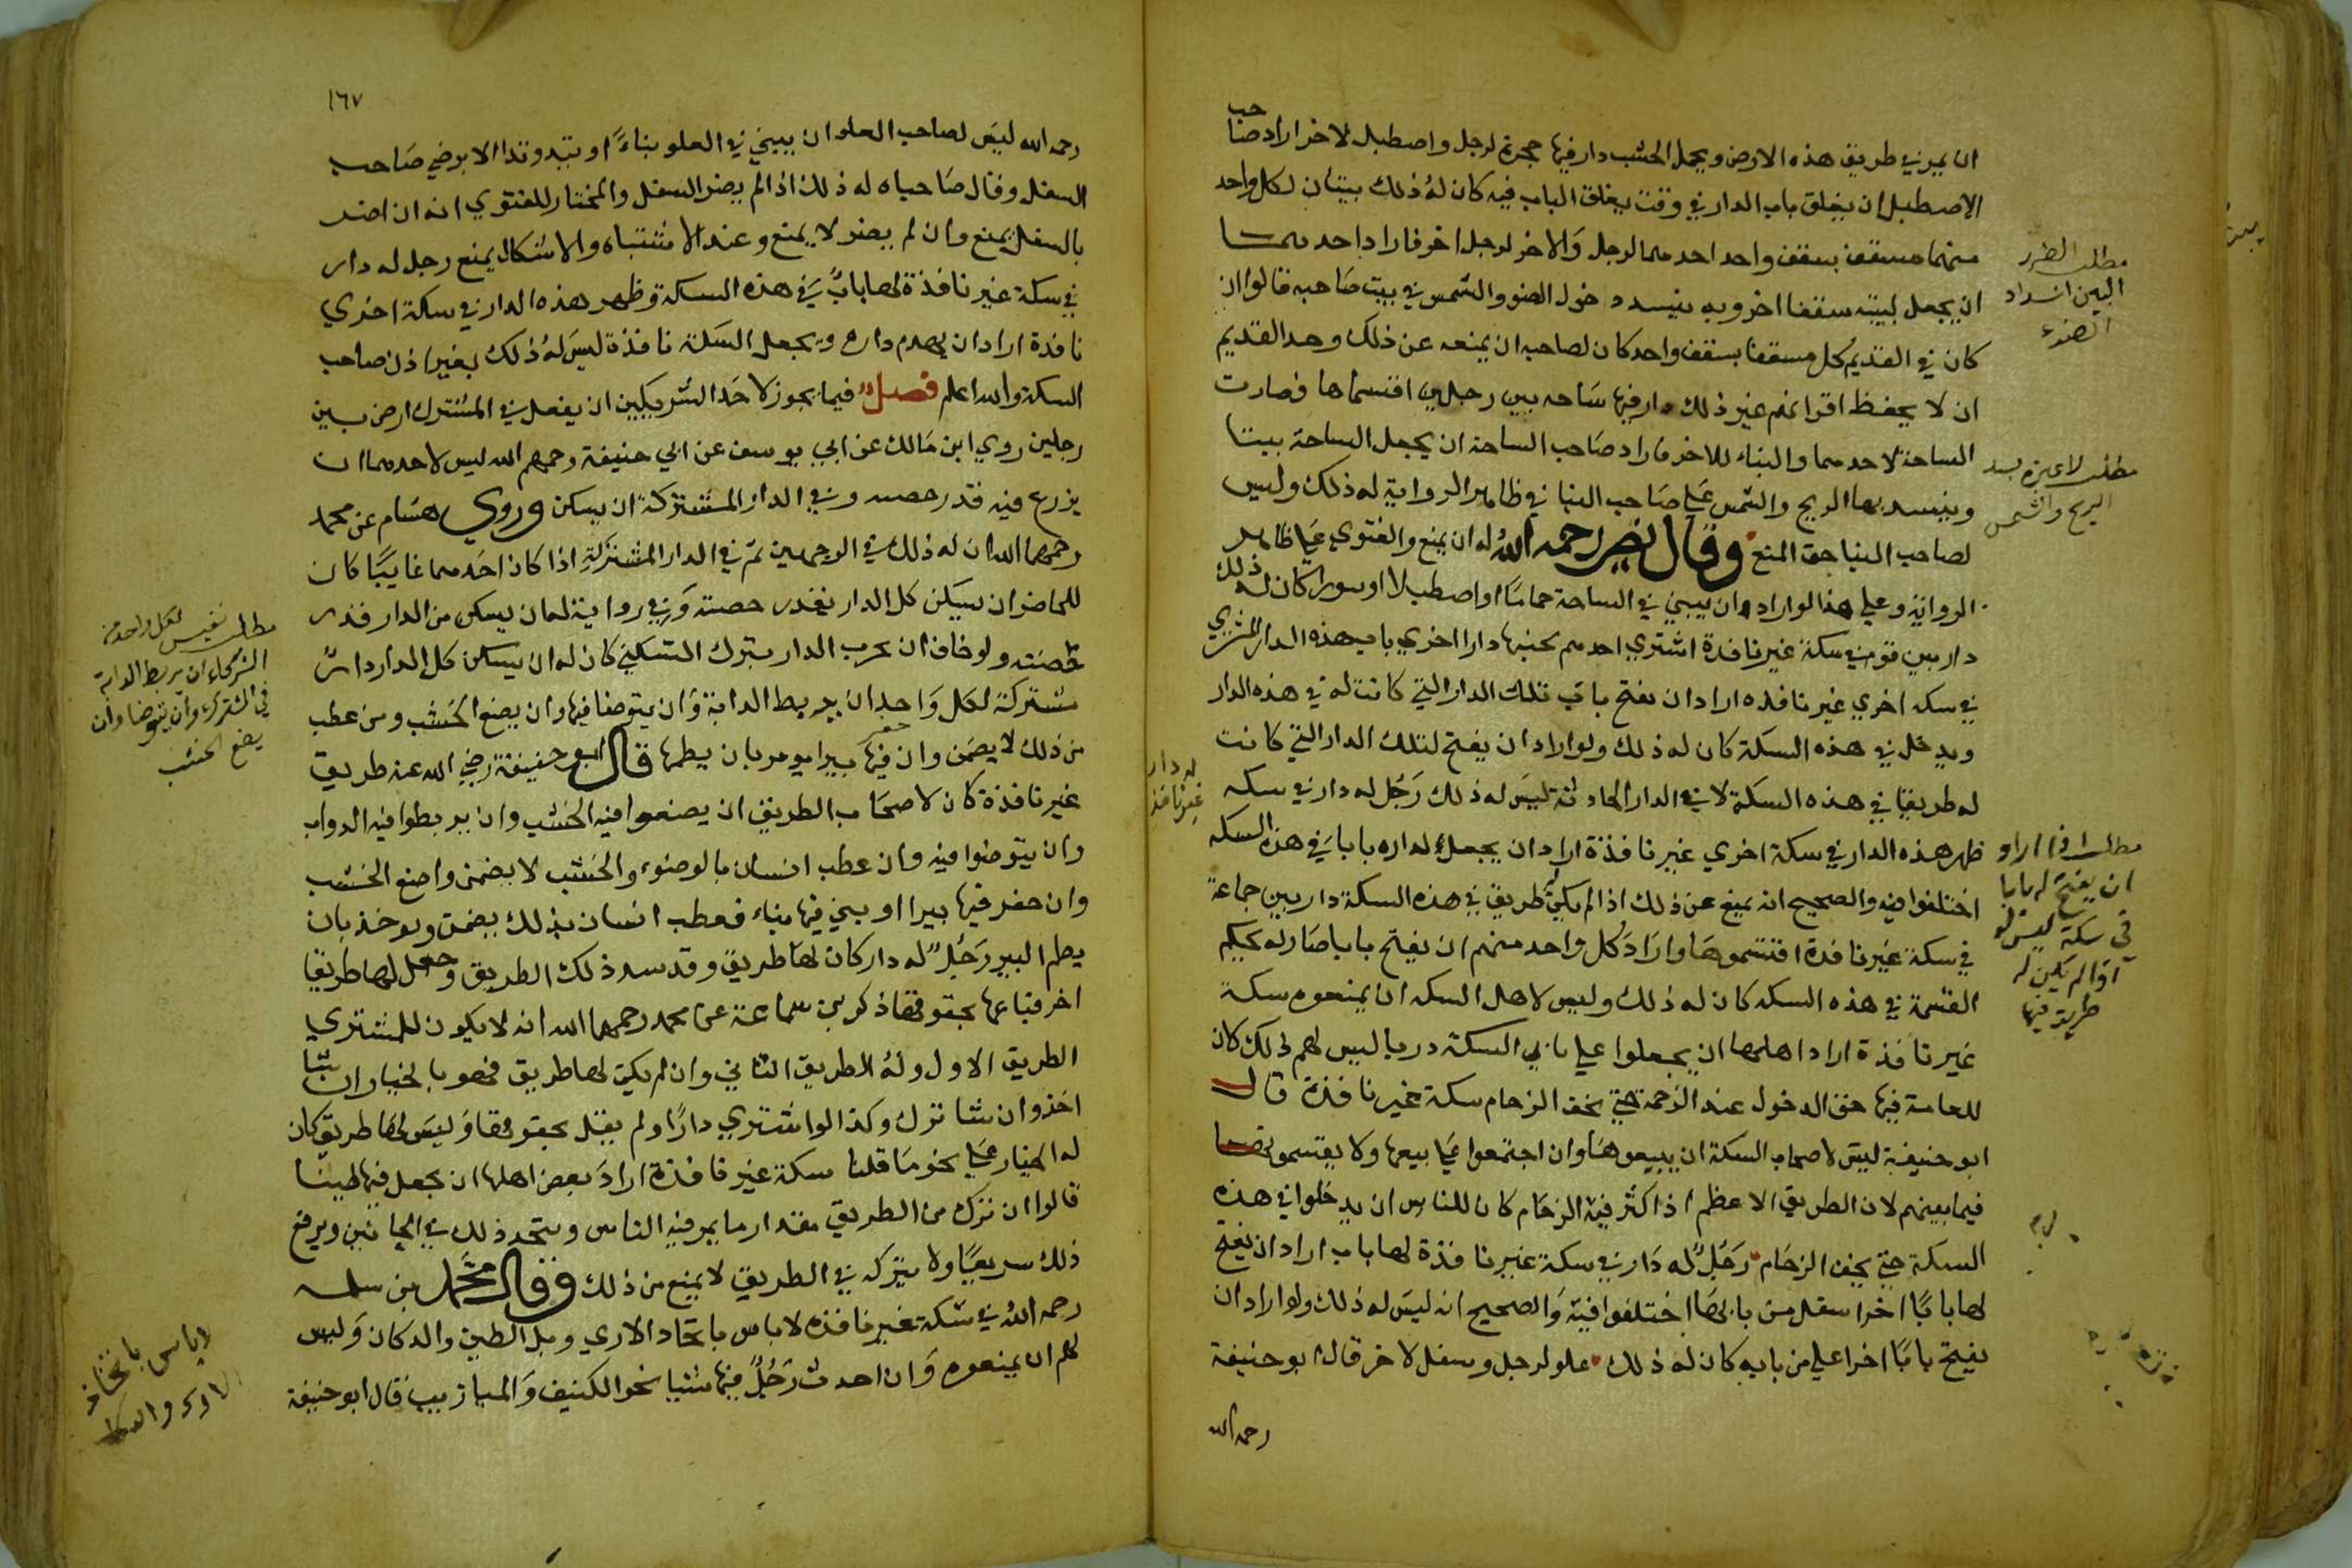 ان يمر في طريق هذه الارض ويحمل الخشب دار فيها حجرة لرجل واصطبل لاخر اراد صاحب
الاصطبل ان يغلق باب الدار في وقت يغلق الباب فيه كان له ذلك بيتان لكل واحد
منهما مسقف بسقف واحد احدهما لرجل والاخر لرجل اخر فاراد احدهما
ان يجعل لبيته سقفا اخر وبه ينسد دخول الضوء والشمس في بيت صاحبه قالوا ان
كان في القديم كل مسقفا بسقف واحد كان لصاحبه ان يمنعه عن ذلك وحد القديم
ان لا يحفظ اقرانهم غير ذلك دار فيها ساحه بين رجلين اقتسماها فصارت
الساحة لاحدهما والبناء للاخر فاراد صاحب الساحة ان يجعل الساحة بيتا
وينسد بها الريح والشمس علي صاحب البنا في ظاهر الرواية له ذلك وليس
لصاحب البنا حق المنع وقال نصير رحمه الله له ان يمنع والفتوي علي ظاهر
الرواية وعلي هذا لو اراد ان يبني في الساحة حماما او اصطبلا او تنورا كان له ذلك
دار بين قوم في سكة غير نافذة اشتري احدهم بجنبها دارا اخري باب هذه الدار المشتري
في سكه اخري غير نافده اراد ان يفتح باب تلك الدار التي كانت له في هذه الدار
ويدخل في هذه السكة كان له ذلك ولو اراد ان يفتح لتلك الدار التي كانت
له طريقا في هذه السكة لا في الدار الحادثة ليس له ذلك رجل له دار في سكه
ظهر هذه الدار في سكة اخري غير نافذة اراد ان يجعل لداره بابا في هذه السكه
اختلفوا فيه والصحيح انه يمنع عن ذلك اذا لم يكن له طريق في هذه السكة دار بين جماعة
في سكة غير نافدة اقتسموها واراد كل واحد منهم ان يفتح بابا صار له بحكم
القسمة في هذه السكه كان له ذلك وليس لاهل السكه ان يمنعوه سكة
غير نافذة اراد اهلها ان يجعلوا علي باب السكة دربا ليس لهم ذلك لان
للعامة فيها حق الدخول عند الزحمة حتي يخف الزحام سكة غير نافذة قال
ابو حنيفة ليس لاصحاب السكة ان يبيعوها وان اجتمعوا علي بيعها ولا يقتسموها
فيما بينهم لان الطريق الاعظم اذا كثر فيه الزحام كان للناس ان يدخلوا في هذه
السكة حتي يخف الزحام رجل له دار في سكة غير نافذة لها باب اراد ان يفتح
لها بابا اخر اسفل من بابها اختلفوا فيه والصحيح انه ليس له ذلك ولو اراد ان
يفتح بابا اخر اعلي من بابه كان له ذلك علو لرجل وسفل لاخر قال ابو حنيفة
رحمه الله
مطلب الضرر
البين انسداد
الضوء
مطلب لا عبرة بسد
الريح والشمس
له دار
غير نافذ
مطلب اذا اراد
ان يفتح له بابا
في سكة ليس له
اذا لم يكن له
طريق فيها
١٦٧
رحمه الله ليس لصاحب العلو ان يبني في العلو بناء او يتد وتدا الا برضي صاحب
السفل وقال صاحباه له ذلك اذا لم يضر السفل والمختار للفتوي انه ان اضر
بالسفل يمنع وان لم يضر لا يمنع وعند الاشتباه والاشكال يمنع رجل له دار
في سكة غير نافذة لها باب في هذه السكة وظهر هذه الدار في سكة اخري
نافدة اراد ان يهدم داره ويجعل السكة نافذة ليس له ذلك بغير اذن صاحب
السكة والله اعلم فصل فيما يجوز لاحد الشريكين ان يفعل في المشترك ارض بين
رجلين روي ابن مالك عن ابي يوسف عن ابي حنيفة رحمهم الله ليس لاحدهما ان
يزرع فيه قدر حصته وفي الدار المشتركة ان يسكن وروي هشام عن محمد
رحمهما الله ان له ذلك في الوجهين ثم في الدار المشتركة اذا كان احدهما غايبا كان
للحاضر ان يسكن كل الدار بقدر حصته وفي رواية له ان يسكن من الدار قدر
حصته ولو خاف ان يخرب الدار بترك السكني كان له ان يسكن كل الدار دار
مشتركة لكل واحد ان يربط الدابة وان يتوضا فيها وان يضع الخشب ومن عطب
من ذلك لا يضمن وان حفر فيها بيرا يومر بان يطمها قال ابو حنيفة رضي الله عنه طريق
غير نافذة كان لاصحاب الطريق ان يضعوا فيه الخشب وان يربطوا فيه الدواب
وان يتوضوا فيه وان عطب انسان بالوضوء والخشب لا يضمن واضع الخشب
وان حفر فيها بيرا او بني فيها بناء فعطب انسان بذلك يضمن ويوخذ بان
يطم البير رجل له دار كان لها طريق وقد سد ذلك الطريق وجعل لها طريقا
اخر فباعها بحقوقها ذكر بن سماعة عن محمد رحمهما الله انه لا يكون للمشتري
الطريق الاول وله الطريق الثاني وان لم يكن لها طريق فهو بالخيار ان شا
اخذ وان شا ترك وكذا لو اشتري دارا ولم يقل بحقوقها وليس لها طريق كان
له الخيار علي نحو ما قلنا سكة غير نافذة اراد بعض اهلها ان يجعل فيها طينا
قالوا ان ترك من الطريق مقدار ما يمر فيه الناس ويتخذ ذلك في الجانبين ويرفع
ذلك سريعا ولا يتركه في الطريق لا يمنع من ذلك وقال محمد بن سلمه
رحمه الله في سكة غير نافذه لا باس باتخاد الاري وبل الطين والدكان وليس
لهم ان يمنعوه وان احدث رجل فيها شيا نحو الكنيف والميازيب قال ابو حنيفة
مطلب نفيس لكل واحد من
الشركاء ان يربط الدابة
في المشترك وان يتوضا وان
يضع الخشب
لا باس باتخاذ
الاري